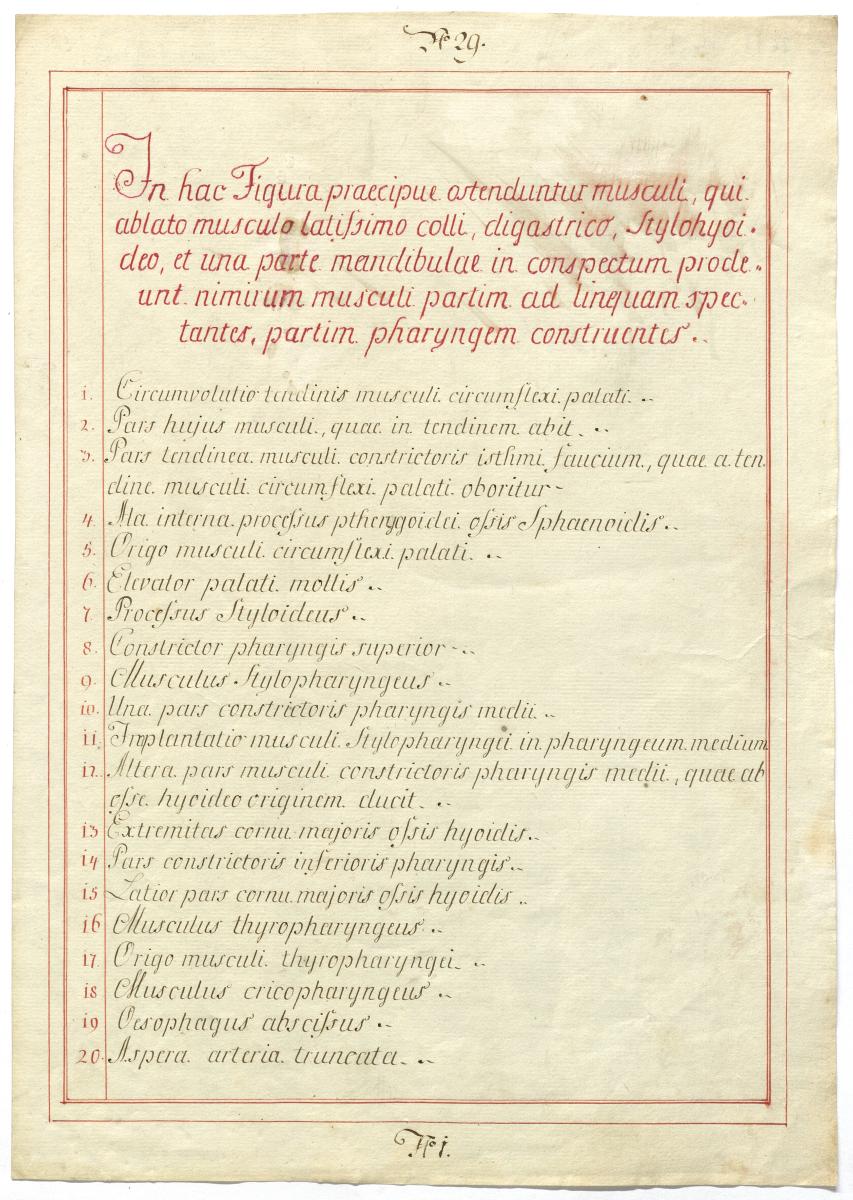 No 29.
In hac Figura praecipue ostenduntur musculi, qui
ablato musculo latiſsimo colli, digastrico, Stylohyoi-
deo, et una parte mandibulae in conspectum prode-
unt nimirum musculi partim ad linguam spec-
tantes, partim pharyngem construentes.
1. Circumvolutio tendinis musculi circumflexi palati.
2. Pars hujus musculi, quae in tendinem abit.
3. Pars tendinea musculi constrictoris isthmi faucium, quae a ten
dine musculi circumflexi palati oboritur-
4. Ala interna proceſsus ptherygoidei oſsis Sphaenoidis.
5. Origo musculi circumflexi palati.
6. Elevator palati mollis.
7. Proceſsus Styloideus.
8. Constrictor pharyngis superior-
9. Musculus Stylopharyngeus.
10. Una pars constrictoris pharyngis medii.
11. Implantatio musculi Stylopharyngei in pharyngeum medium
12. Altera pars musculi constrictoris pharyngis medii, quae ab
oſse hyoideo originem ducit.
13 Extremitas cornu majoris oſsis hyoidis.
14 Pars constrictoris inferioris pharyngis.
15 Latior pars cornu majoris oſsis hyoidis.
16 Musculus thyropharyngeus.
17. Origo musculi thyropharyngei.
18 Musculus cricopharyngeus.
19 Oesophagus absciſsus.
20. Aspera arteria truncata.
No 1.